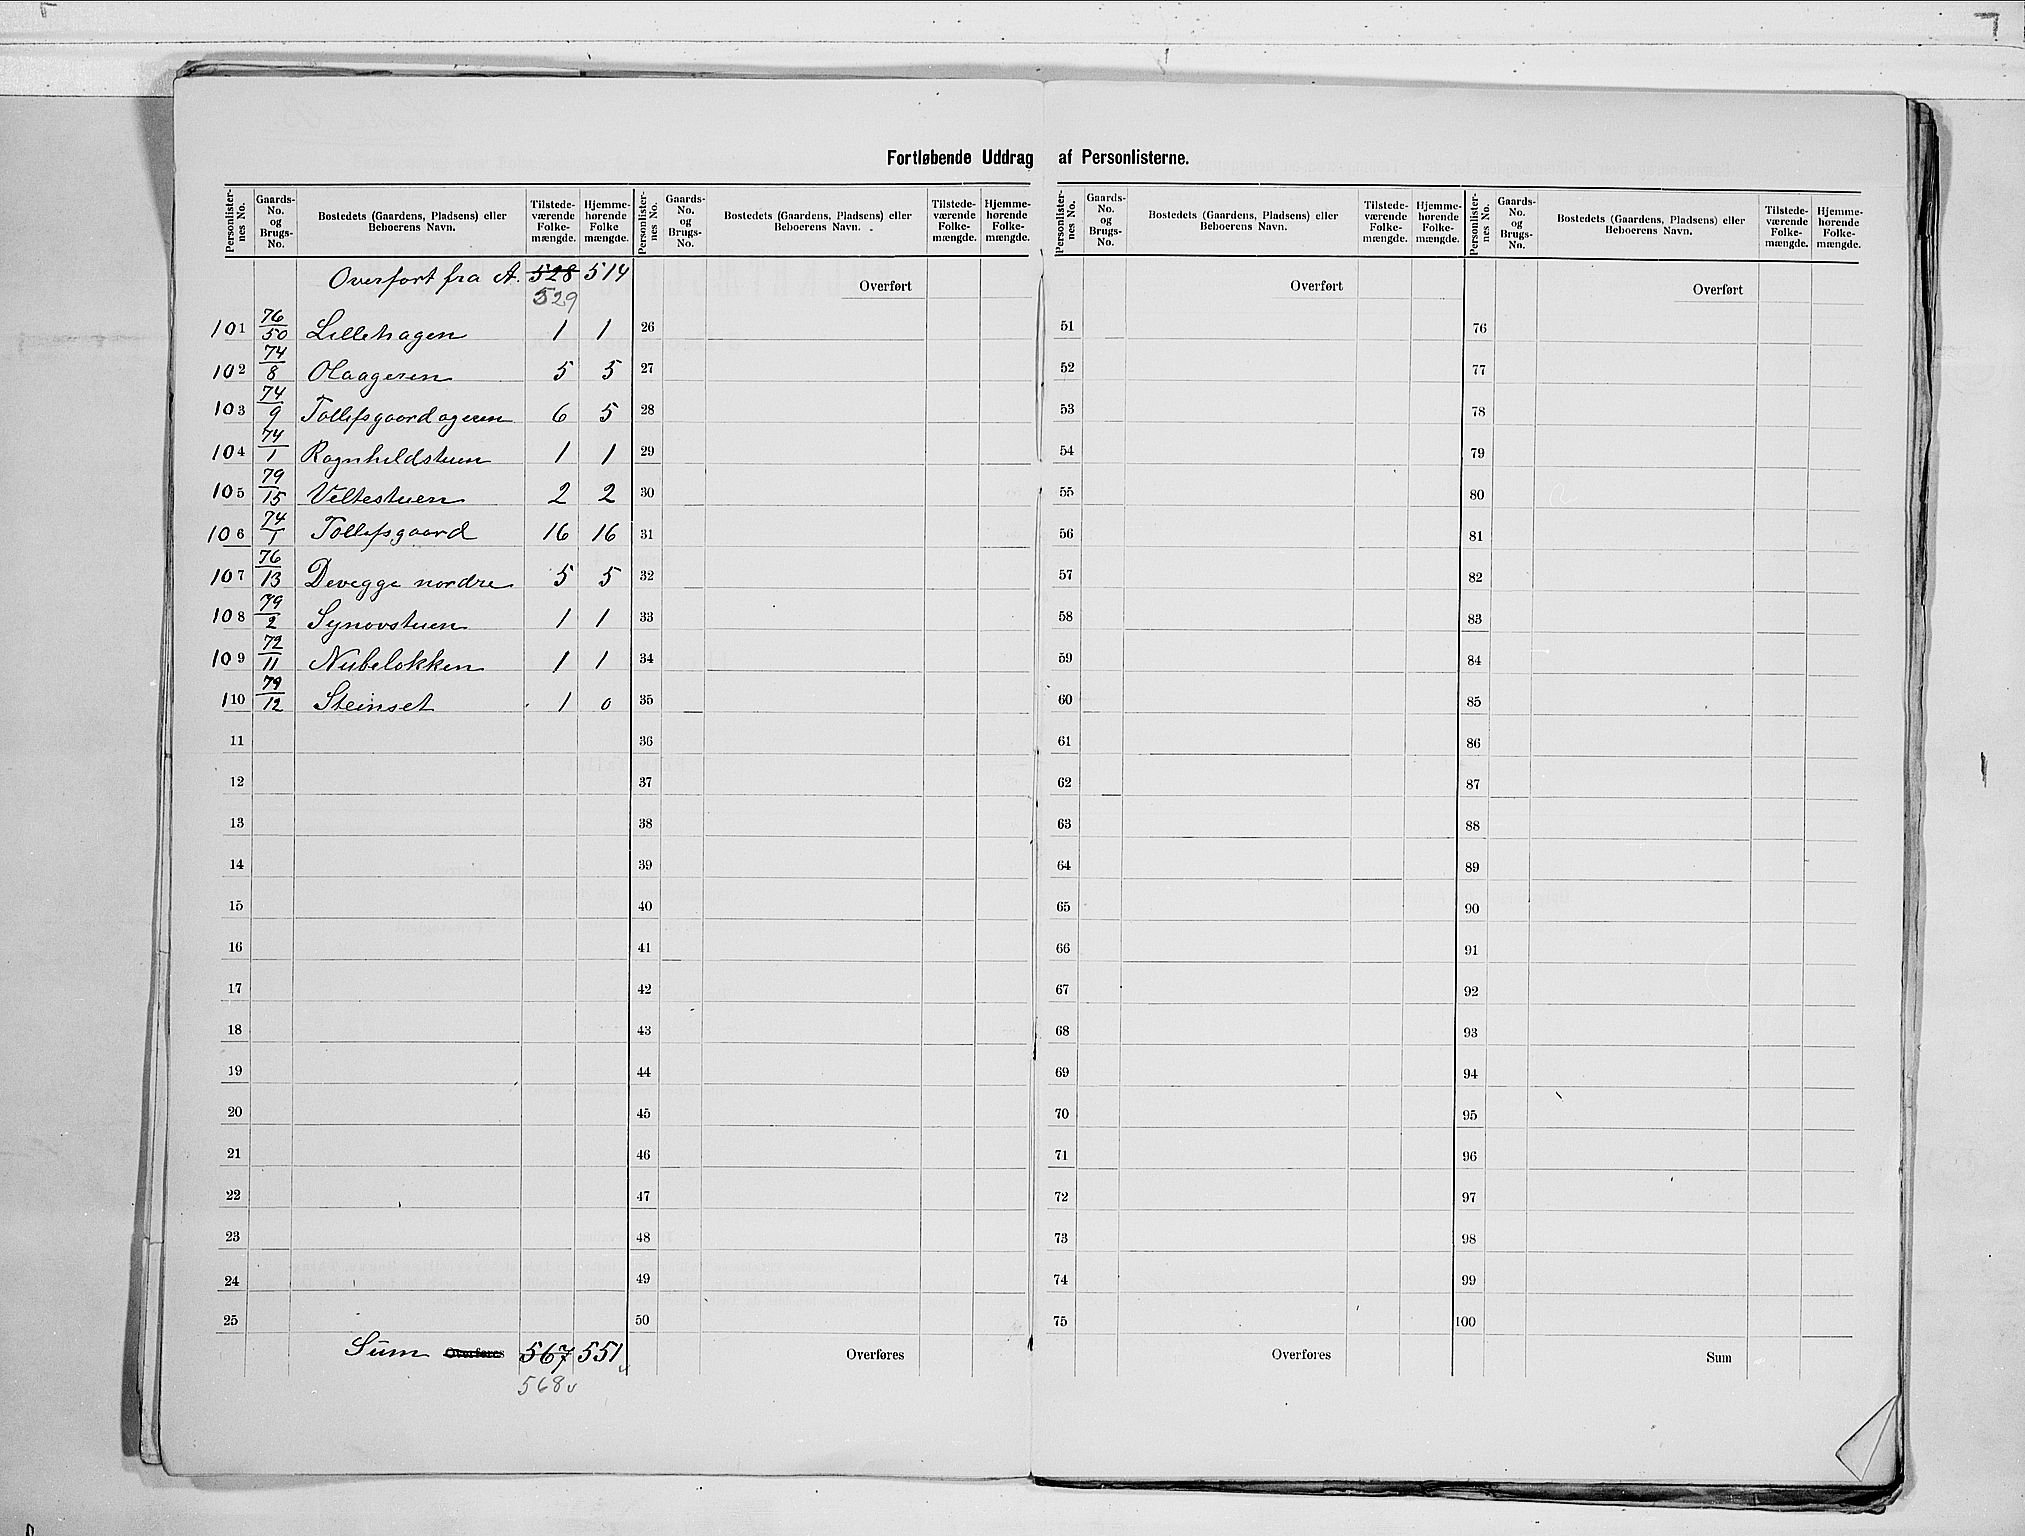 Fortløbende Uddrag af Personlisterne.
Personlister-nes No. Gaards-No. og Brugs-No. Bostedets (Gaardens, Pladsens) eller Beboerens Navn. Tilstede-værende Folke-mængde. Hjemme-hørende Folke mængde.
Overført fra A. 528 514
529
101 76/50 Lillehagen 1 1
102 74/8 Olaageren 5 5
103 74/9 Tollefsgaardageren 6 5
104 74/1 Ragnhildstuen 1 1
105 79/15 Veltestuen 2 2
106 74/1 Tollefsgaard 16 16
107 76/13 Devegge nordre 5 5
108 79/2 Synovstuen 1 1
109 72/11 Nubeløkken 1 1
110 79/12 Steinset 1 0
11
12
13
14
15
16
17
18
19
20
21
22
23
24
25
Sum Overføres 567 551
568
Personlister-nes No. Gaards-No. og Brugs-No. Bostedets (Gaardens, Pladsens) eller Beboerens Navn. Tilstede-værende Folke-mængde. Hjemme-hørende Folke-mængde.
Overført
26
27
28
29
30
31
32
33
34
35
36
37
38
39
40
41
42
43
44
45
46
47
48
49
50
Overføres
Personlister-nes No. Gaards-No. og Brugs-No. Bostedets (Gaardens, Pladsens) eller Beboerens Navn. Tilstede-værende Folke-mængde. Hjemme-hørende Folke-mængde.
Overført
51
52
53
54
55
56
57
58
59
60
61
62
63
64
65
66
67
68
69
70
71
72
73
74
75
Overføres
Personlister-nes No. Gaards-No. og Brugs-No. Bostedets (Gaardens, Pladsens) eller Beboerens Navn. Tilstede-værende Folke-mængde. Hjemme-hørende Folke-mængde.
Overført
76
77
78
79
80
81
82
83
84
85
86
87
88
89
90
91
92
93
94
95
96
97
98
99
100
Sum